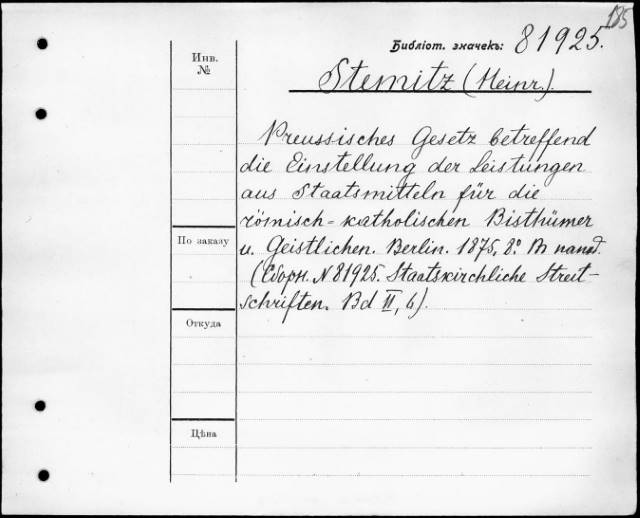 185
Библіот. значекъ: 81925.
Инв.
№
Stemitz (Heinr.).
Preussisches Gesetz betreffend
die Einstellung der Leistungen
aus Staatsmitteln für die
römisch-katholischen Bisthümer
По заказу
u. Geistlichen. Berlin. 1875, 8º. Въ папкѣ.
(Сборн. N 81925. Staatskirchliche Streit-
schriften. Bd II, 6).
Откуда
Цѣна